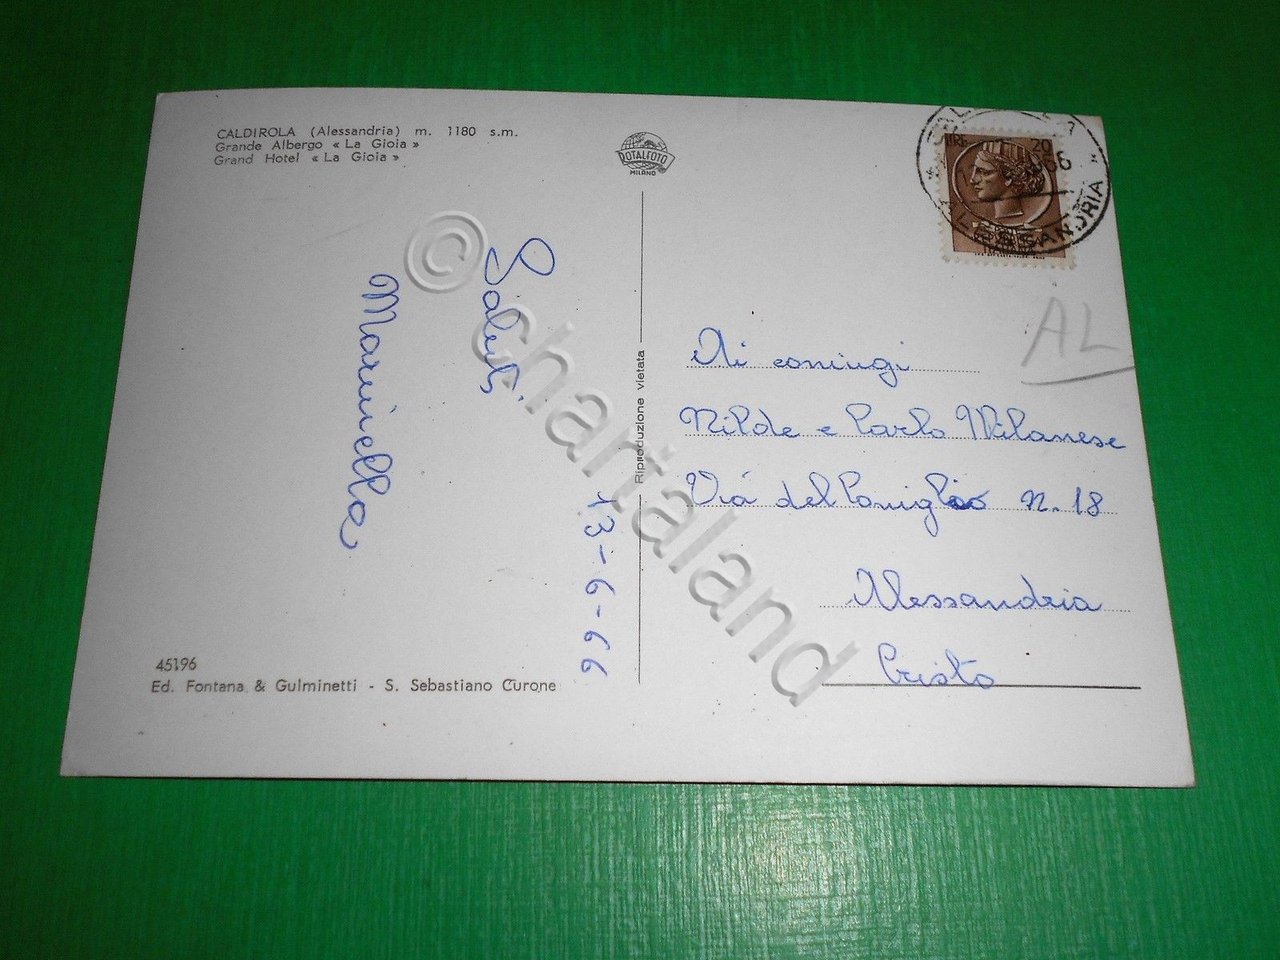 CALDIROLA (Alessandria) m. 1180 s.m.
Grande Albergo « La Gioia »
Grand Hotel « La Gioia »
TOTALFOTO
MILANO
LIRE 20
1966
* ALESSANDRIA *
AL
Saluti
Mariella
13-6-66
Riproduzione vietata
Ai coniugi
Nilde e Carlo Milanese
Via del Coniglio n. 18
Alessandria
Cristo
45196
Ed. Fontana & Gulminetti - S. Sebastiano Curone
© chartaland